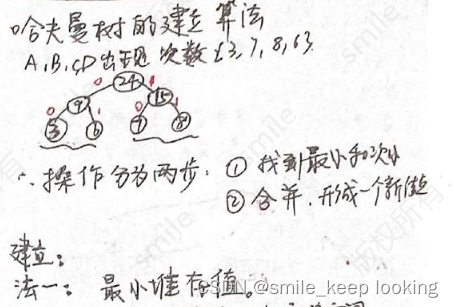 哈夫曼树的建立算法
A,B,C,D出现次数{3,7,8,6}
0 24 1
0 9 1 0 15 1
3 6 7 8
∴操作分为两步: ① 找到最小和次小
② 合并,形成一个新结点
建立:
法一: 最小堆存值。
CSDN @smile_keep looking
smile
版权所有